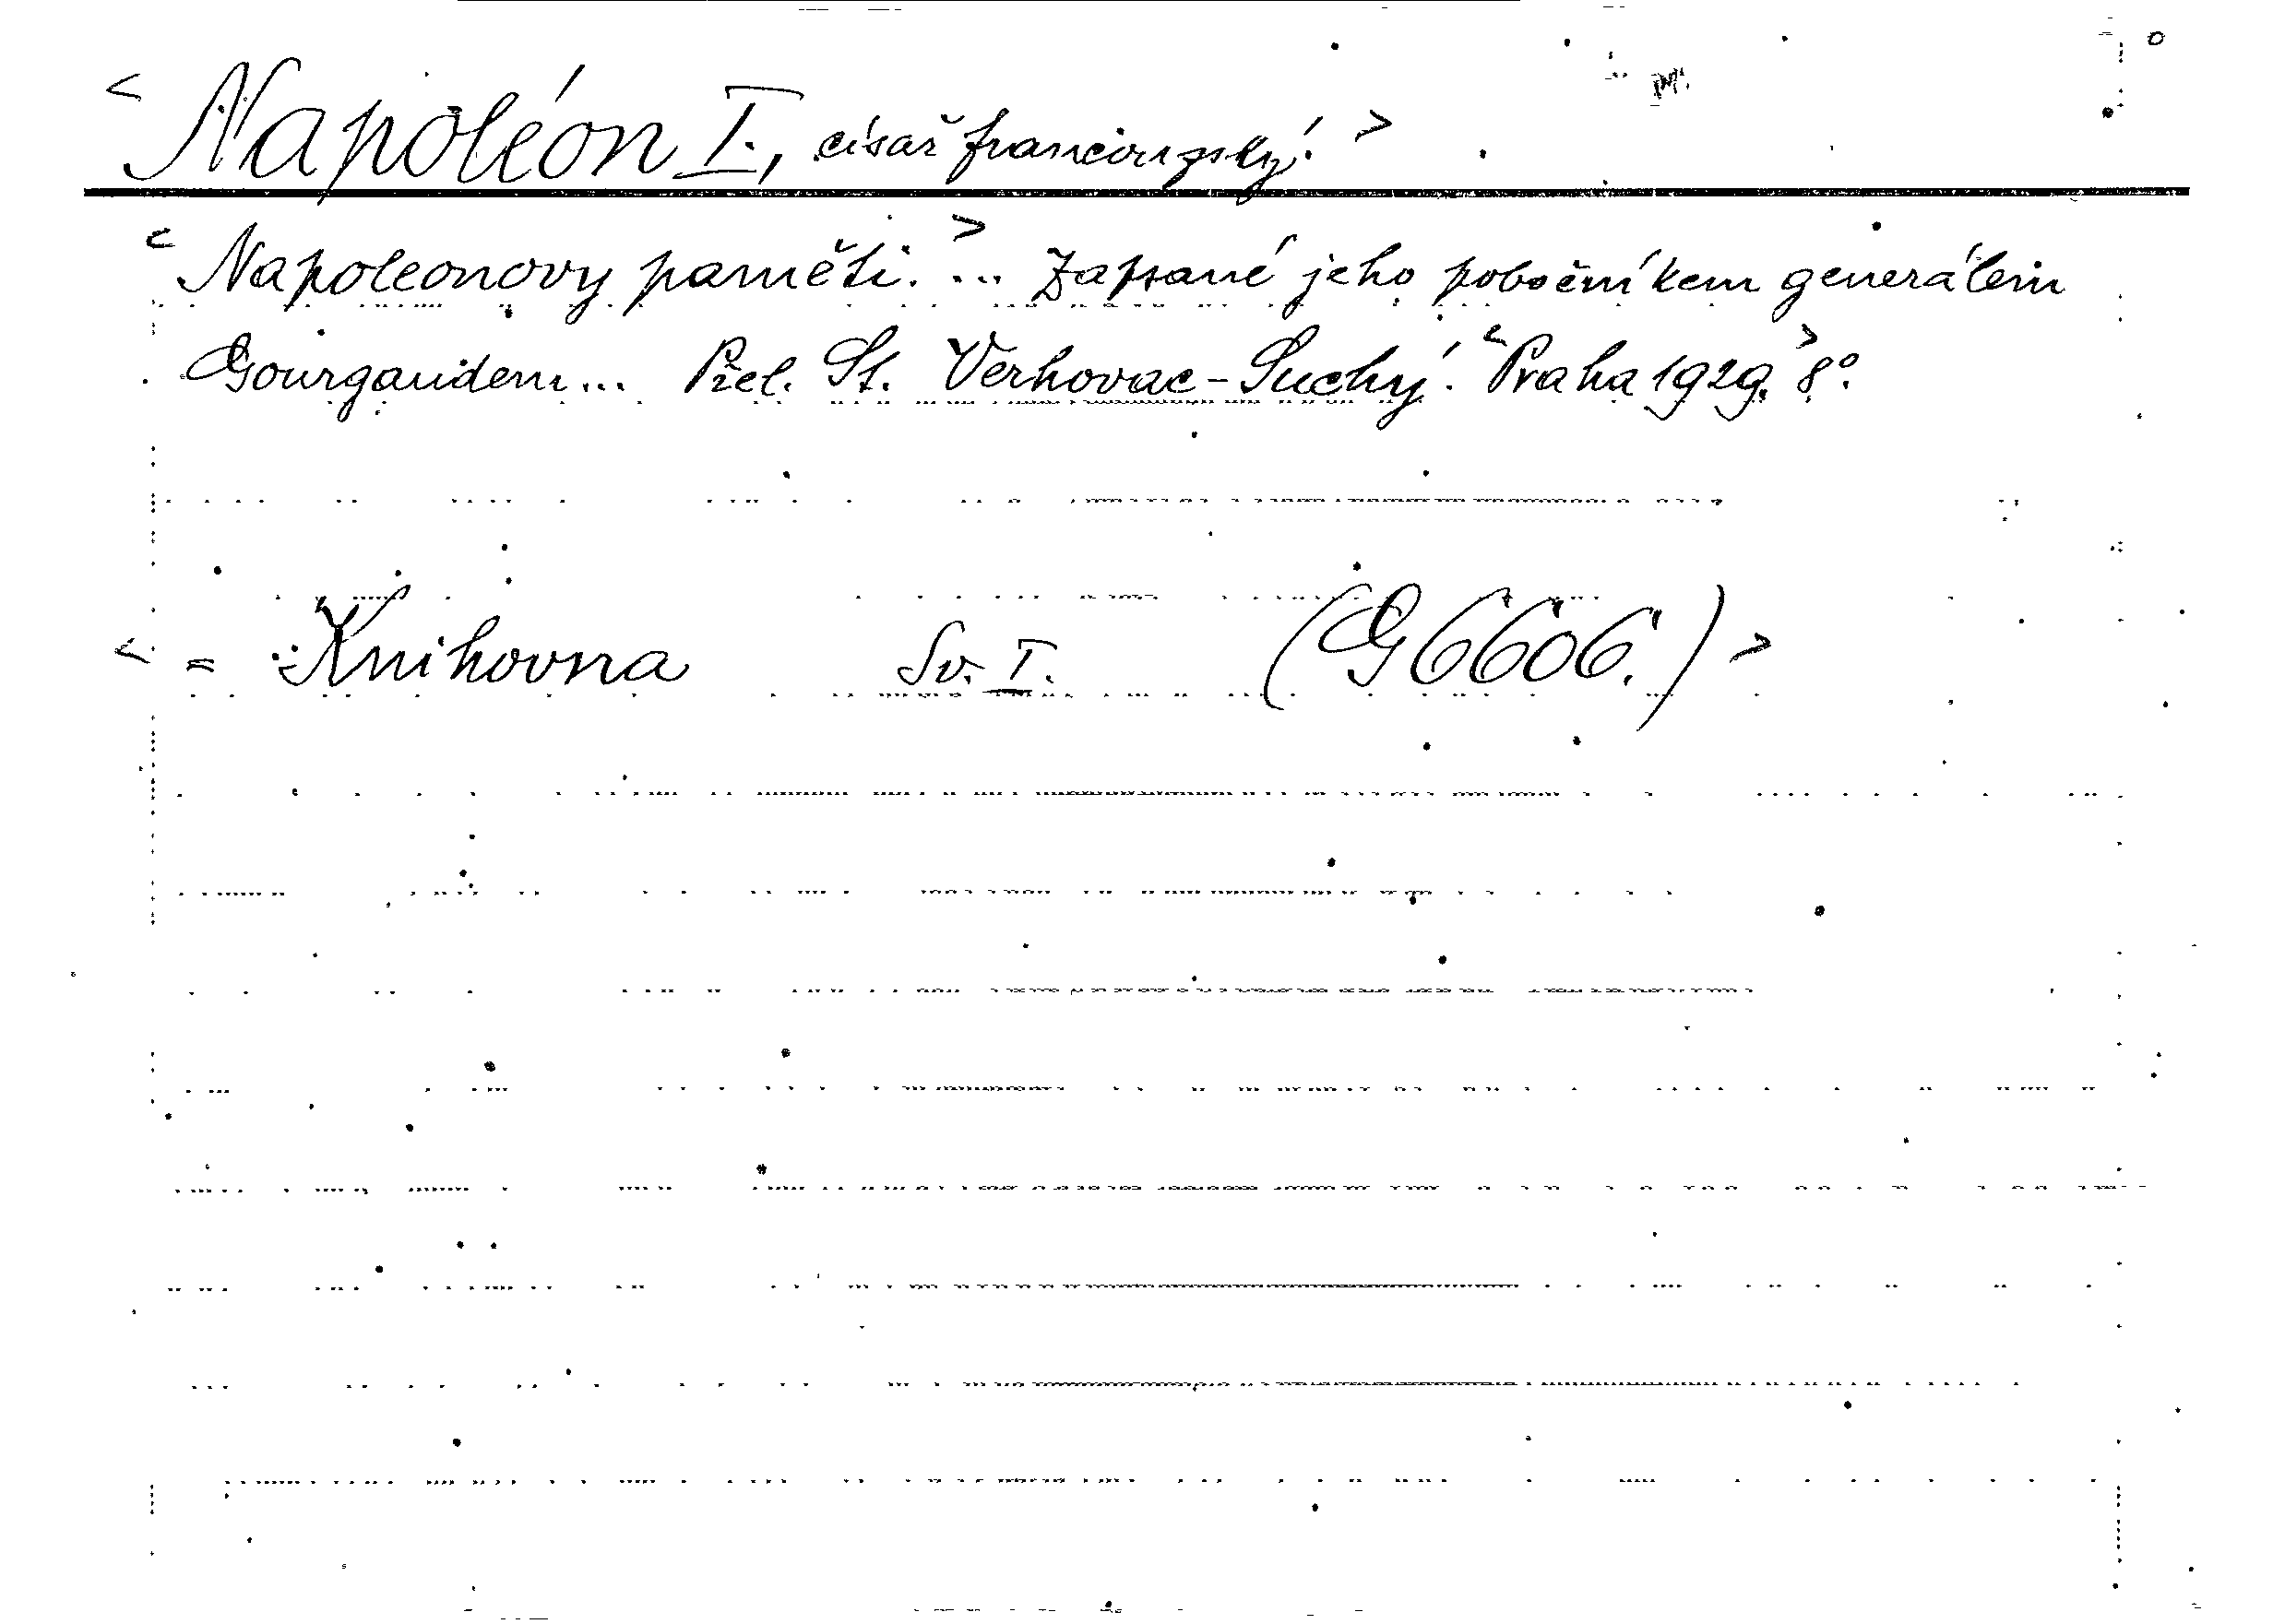 < Napoléon I., císař francouzský. >
< Napoleonovy paměti. > ... Zapsané jeho pobočníkem generálem
Gourgaudem... Přel. St. Verhovac-Suchý. < Praha 1929. > 8°.
< = Knihovna Sv. I. (G 6606.) >